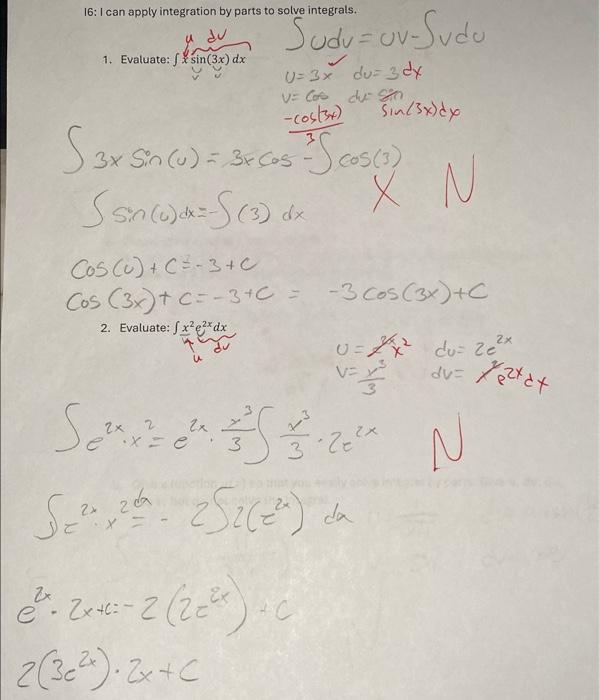 16: I can apply integration by parts to solve integrals.
u dv
∫udv = uv-∫vdu
1. Evaluate: ∫ x sin(3x) dx
u = 3x ✓ du = 3 dx
v = cos dv = sin
-cos(3x)/3 sin(3x)dx
∫ 3x sin(u) = 3x cos - ∫ cos(3)
X N
∫ sin(u) dx = -∫ (3) dx
cos(u) + C = -3 + C
cos (3x) + C = -3 + C = -3 cos(3x) + C
2. Evaluate: ∫ x²e²ˣdx
u dv
u = x² du = 2e²ˣ
v = x³/3 dv = x² e²ˣdx
∫ e²ˣ · x² = e²ˣ · x³/3 ∫ x³/3 · 2e²ˣ N
∫ e²ˣ · x² dx = - 2∫2(e²ˣ) dx
e²ˣ · 2x + C = -2 (2e²ˣ) + C
2(3e²ˣ) · 2x + C